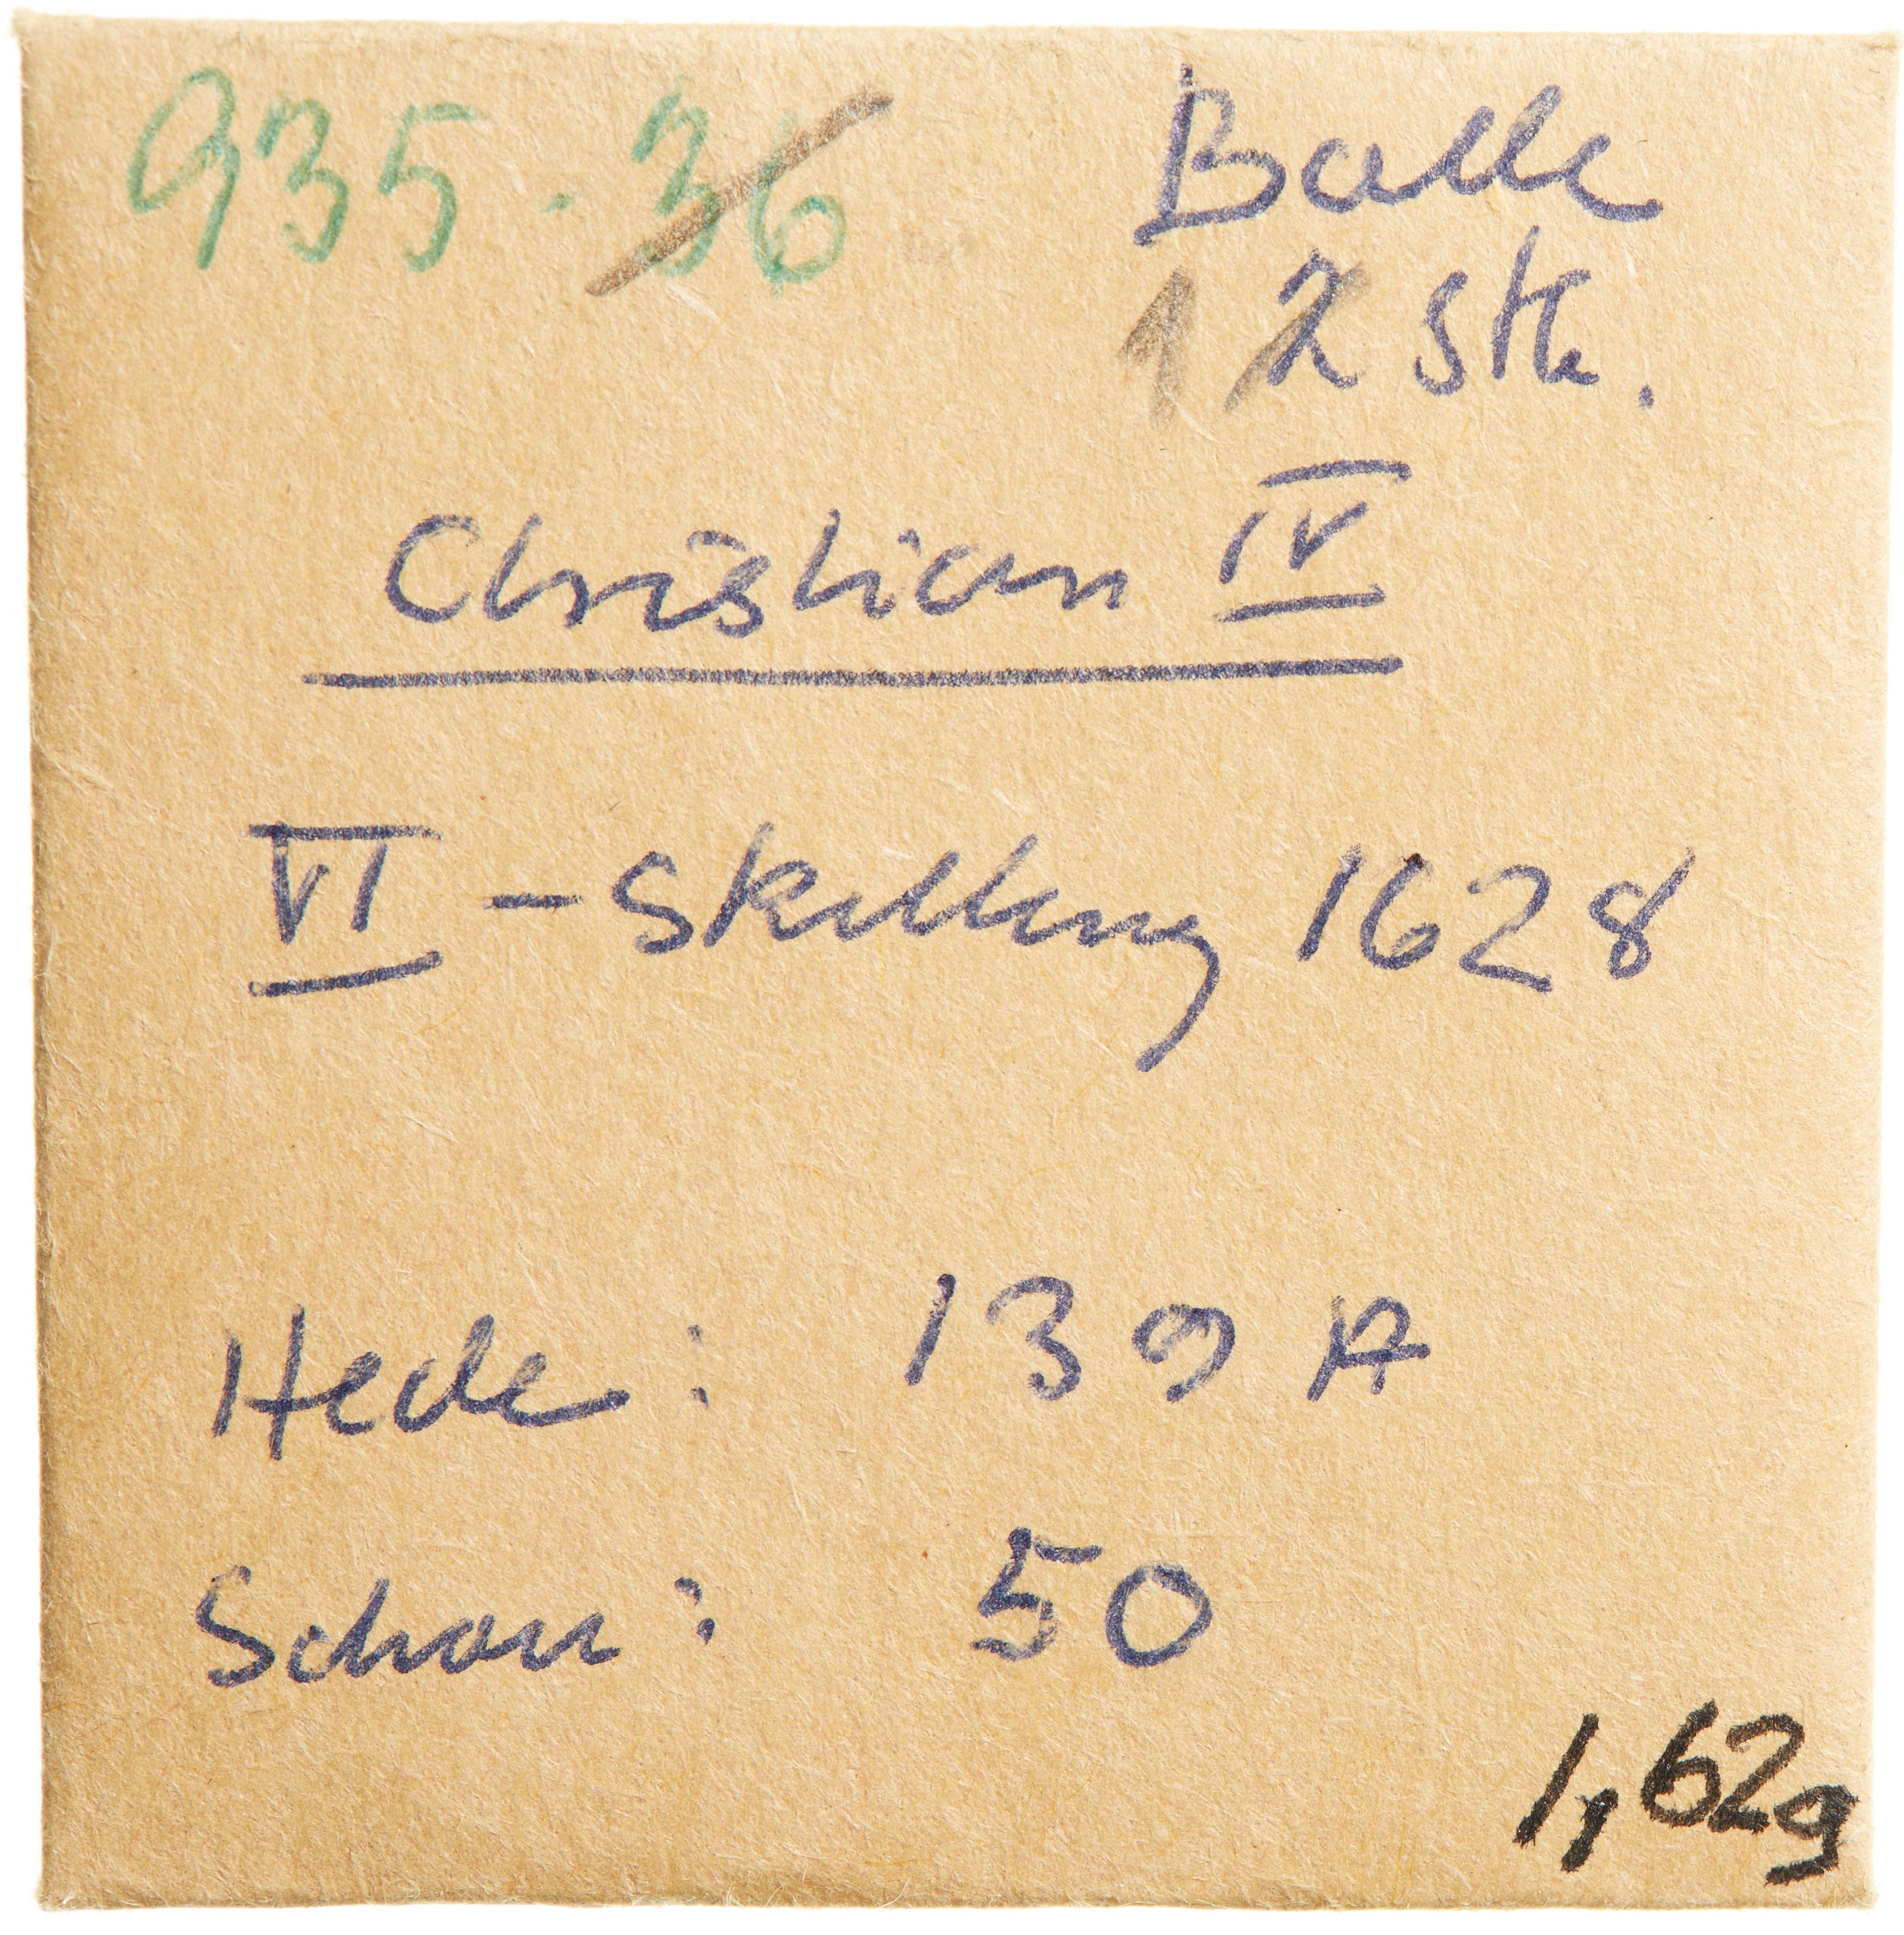 935-36
Balle
1 2 stk.
Christian IV
VI - Skilling 1628
Hede: 139 A
Schou: 50
1,62g